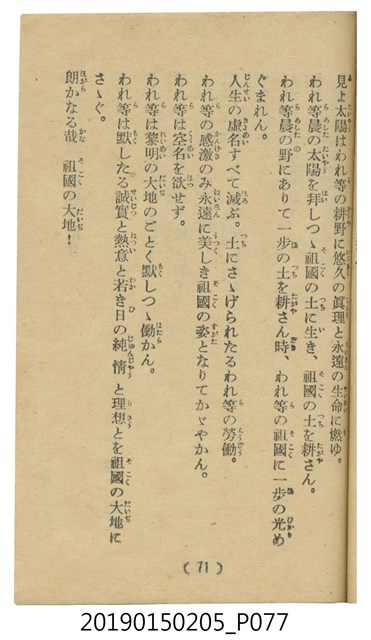 見よ太陽はわれ等の耕野に悠久の眞理と永遠の生命に燃ゆ。
われ等晨の太陽を拜しつゝ祖國の土に生き、祖國の土を耕さん。
われ等晨の野にありて一歩の土を耕さん時、われ等の祖國に一歩の光め
ぐまれん。
人生の虚名すべて滅ぶ。土にさゝげられたるわれ等の勞働。
われ等の感激のみ永遠に美しき祖國の姿となりてかゞやかん。
われ等は空名を欲せず。
われ等は黎明の大地のごとく默しつゝ働かん。
われ等は默したる誠實と熱意と若き日の純情と理想とを祖國の大地に
さゝぐ。
朗かなる哉　祖國の大地！
(71)
20190150205_P077